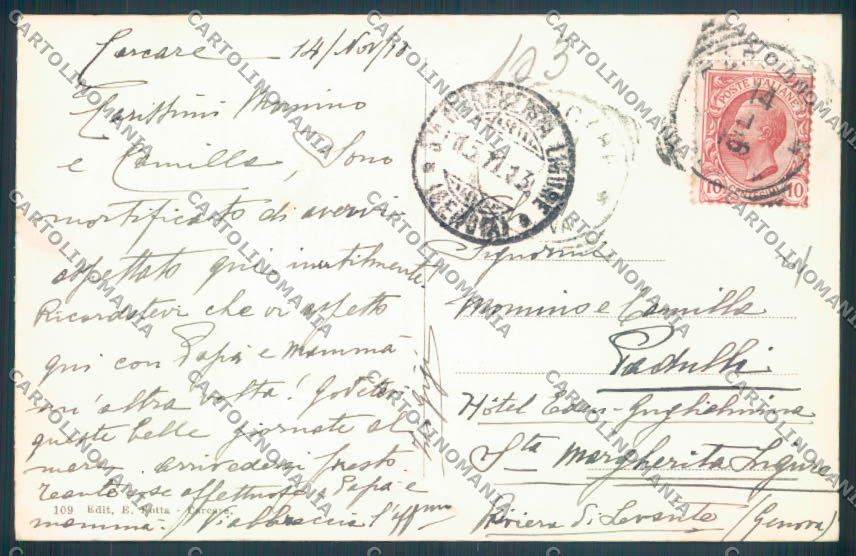 Carcare 14/Nov/10
Carissimi Momino
e Camilla, Sono
mortificato di avervi
aspettato qui inutilmente
Ricordatevi che vi aspetto
qui con Papà e Mammà
un'altra volta! Godetevi
queste belle giornate al
mare, arrivederci presto
tante cose affettuose a Papà e
mammà. Vi abbraccia l'aff.mo
109 Edit. E. Rotta - Carcare.
103
MARGHERITA LIGURE
(GENOVA)
POSTE ITALIANE
10 CENTESIMI 10
Signorini
Momino e Camilla
Padulli
Hôtel Eden-Guglielmina
Sta Margherita Ligure
Riviera di Levante (Genova)
CARTOLINOMANIA